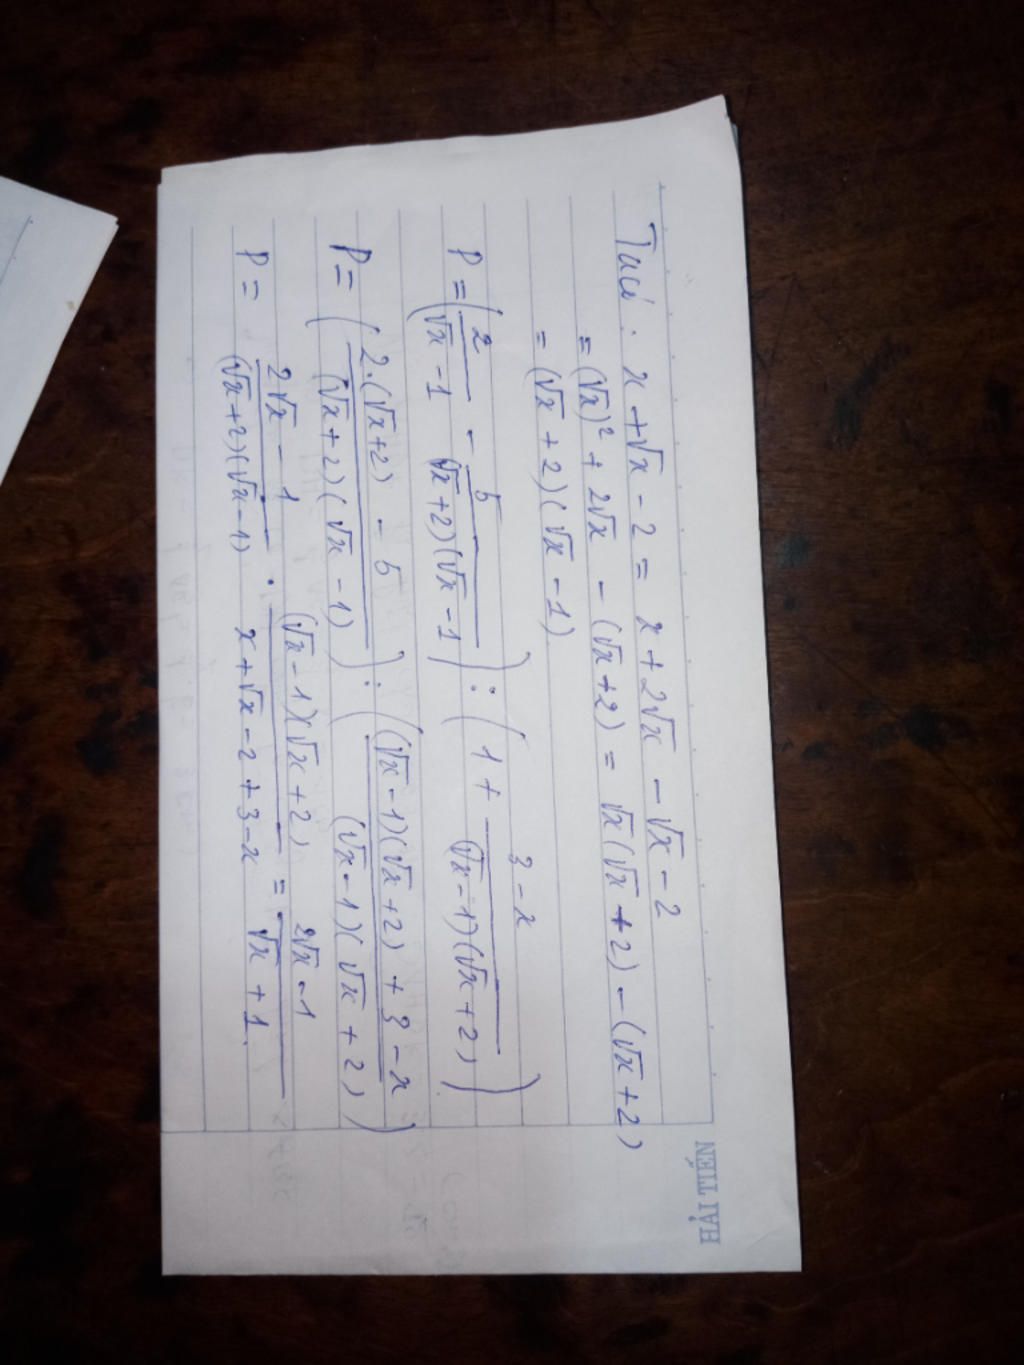 HẢI TIẾN
Ta có: x + √x - 2 = x + 2√x - √x - 2
= (√x)² + 2√x - (√x + 2) = √x(√x + 2) - (√x + 2)
= (√x + 2)(√x - 1)
P = (2/(√x - 1) - 5/(√x + 2)(√x - 1)) : (1 + (3 - x)/((√x - 1)(√x + 2)))
P = ((2.(√x + 2) - 5)/((√x + 2)(√x - 1))) : (((√x - 1)(√x + 2) + 3 - x)/((√x - 1)(√x + 2)))
P = (2√x - 1)/((√x + 2)(√x - 1)) . ((√x - 1)(√x + 2))/(x + √x - 2 + 3 - x) = (2√x - 1)/(√x + 1).